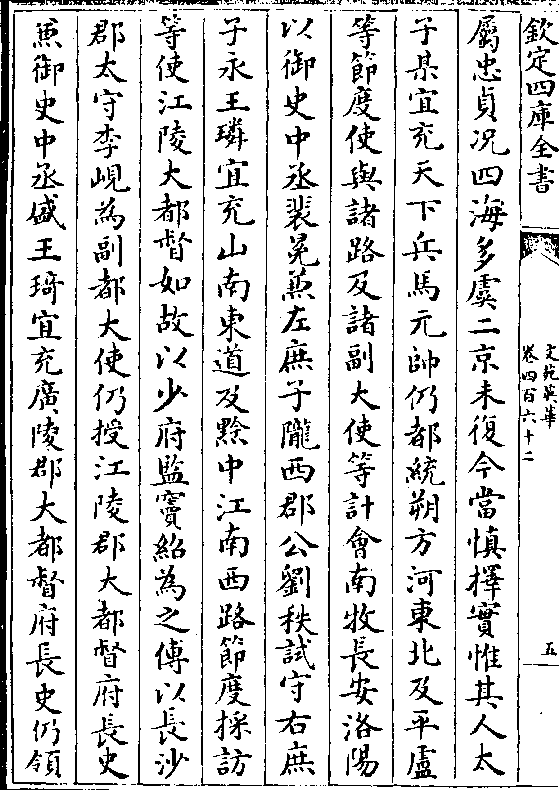 欽定四庫全書
文苑英華
卷四百六十二
五
屬忠貞况四海多虞二京未復今當慎擇實惟其人太
子某宜充天下兵馬元帥仍都統朔方河東北及平盧
等節度使與諸路及諸副大使等計會南牧長安洛陽
以御史中丞裴冕兼左庶子隴西郡公劉秩試守右庶
子永王璘宜充山南東道及黔中江南西路節度採訪
等使江陵大都督如故以少府監竇紹為之傅以長沙
郡太守李峴為副都大使仍授江陵郡大都督府長史
兼御史中丞盛王琦宜充廣陵郡大都督府長史仍領